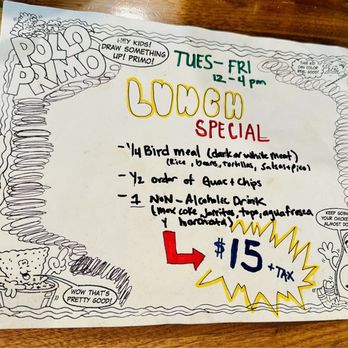 POLLO PRIMO
HEY KIDS!
DRAW SOMETHING
UP! PRIMO!
TUES-FRI
12-4 pm
LUNCH
SPECIAL
- 1/4 Bird meal (dark or white meat)
(Rice, beans, tortillas, salsa + pico)
- 1/2 order of Guac + Chips
- 1 NON-Alcoholic Drink
(mex coke, Jarritos, topo, aguafresca
y horchata)
$15 + TAX
KEEP GOING
YOUR CHICKEN
ALMOST DO
WOW THAT'S
PRETTY GOOD!